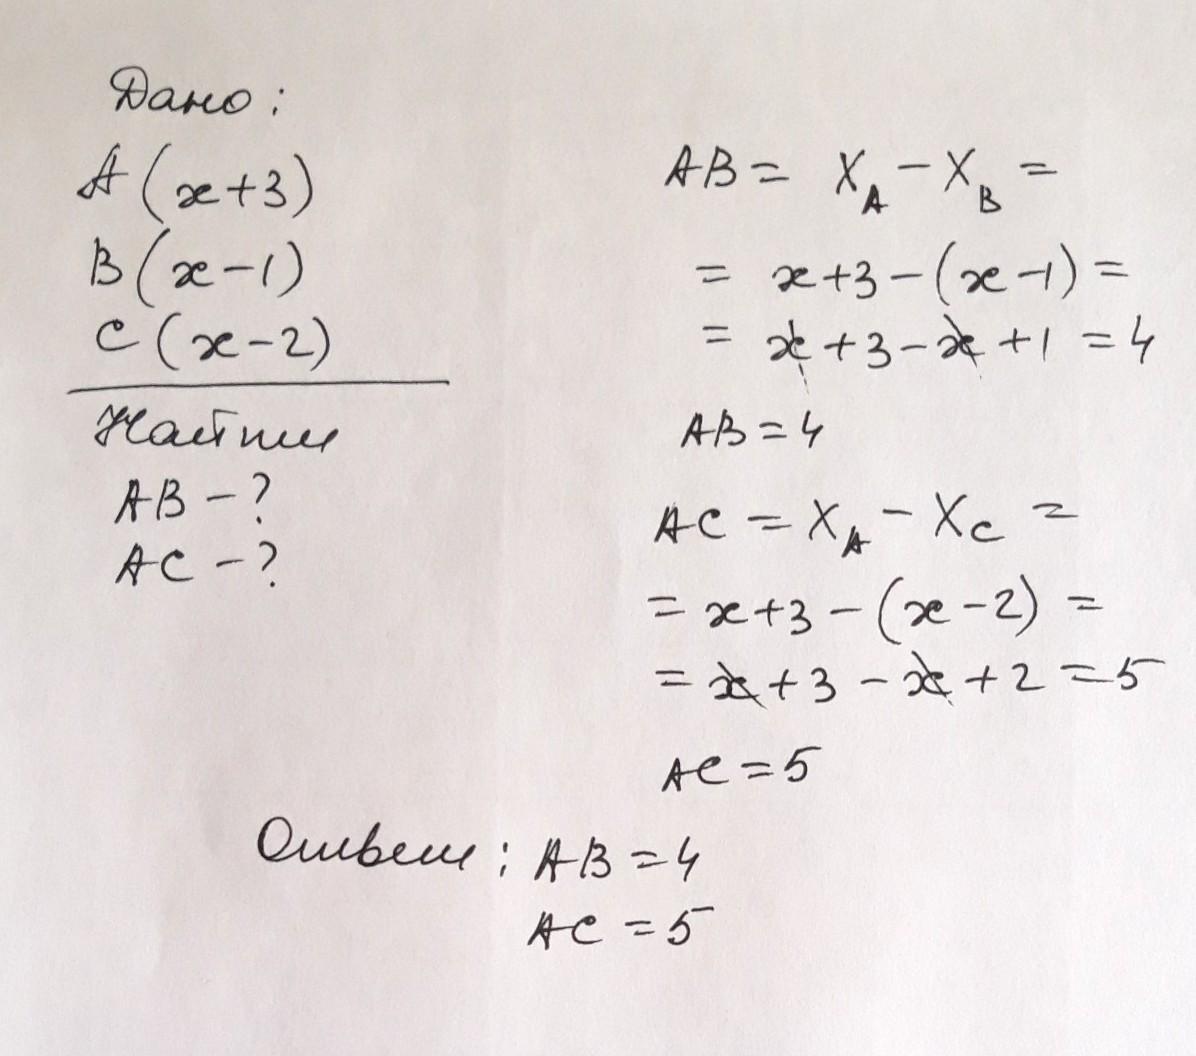 Дано:
A(x+3)
B(x-1)
C(x-2)
Найти
AB-?
AC-?
AB = X_A - X_B =
= x+3-(x-1) =
= x+3-x+1 = 4
AB = 4
AC = X_A - X_C =
= x+3-(x-2) =
= x+3-x+2 = 5
AC = 5
Ответ: AB = 4
AC = 5